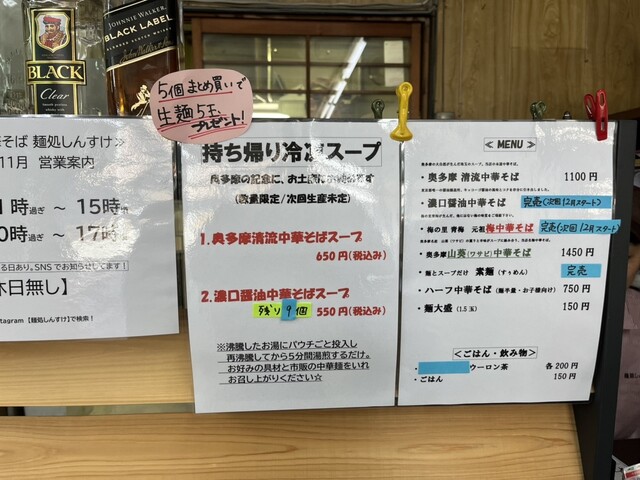 BLACK
Clear
JOHNNIE WALKER
BLACK LABEL
5個まとめ買いで
生麺5玉
プレゼント!
そば 麺処しんすけ≫
11月 営業案内
時過ぎ ～ 15時
0時過ぎ ～ 17時
る日あり。SNSでお知らせします!
休日無し】
tagram 【麺処しんすけ】で検索!
持ち帰り冷凍スープ
奥多摩の記念に、お土産に
(数量限定/次回生産未定)
1.奥多摩清流中華そばスープ
650円(税込み)
2.濃口醤油中華そばスープ
残り9個 550円(税込み)
※沸騰したお湯にパウチごと投入し
再沸騰してから5分間湯煎するだけ。
お好みの具材と市販の中華麺をいれ
お召し上がりください☆
≪ MENU ≫
・奥多摩 清流中華そば 1100円
・濃口醤油中華そば 完売(次回12月スタート)
・梅の里 青梅 元祖梅中華そば 完売(次回12月スタート)
・奥多摩山葵(ワサビ)中華そば 1450円
・麺とスープだけ 素麺(すぅめん) 完売
・ハーフ中華そば(麺半量・お子様向け) 750円
・麺大盛(1.5玉) 150円
＜ごはん・飲み物＞
・ ウーロン茶 各200円
・ごはん 150円